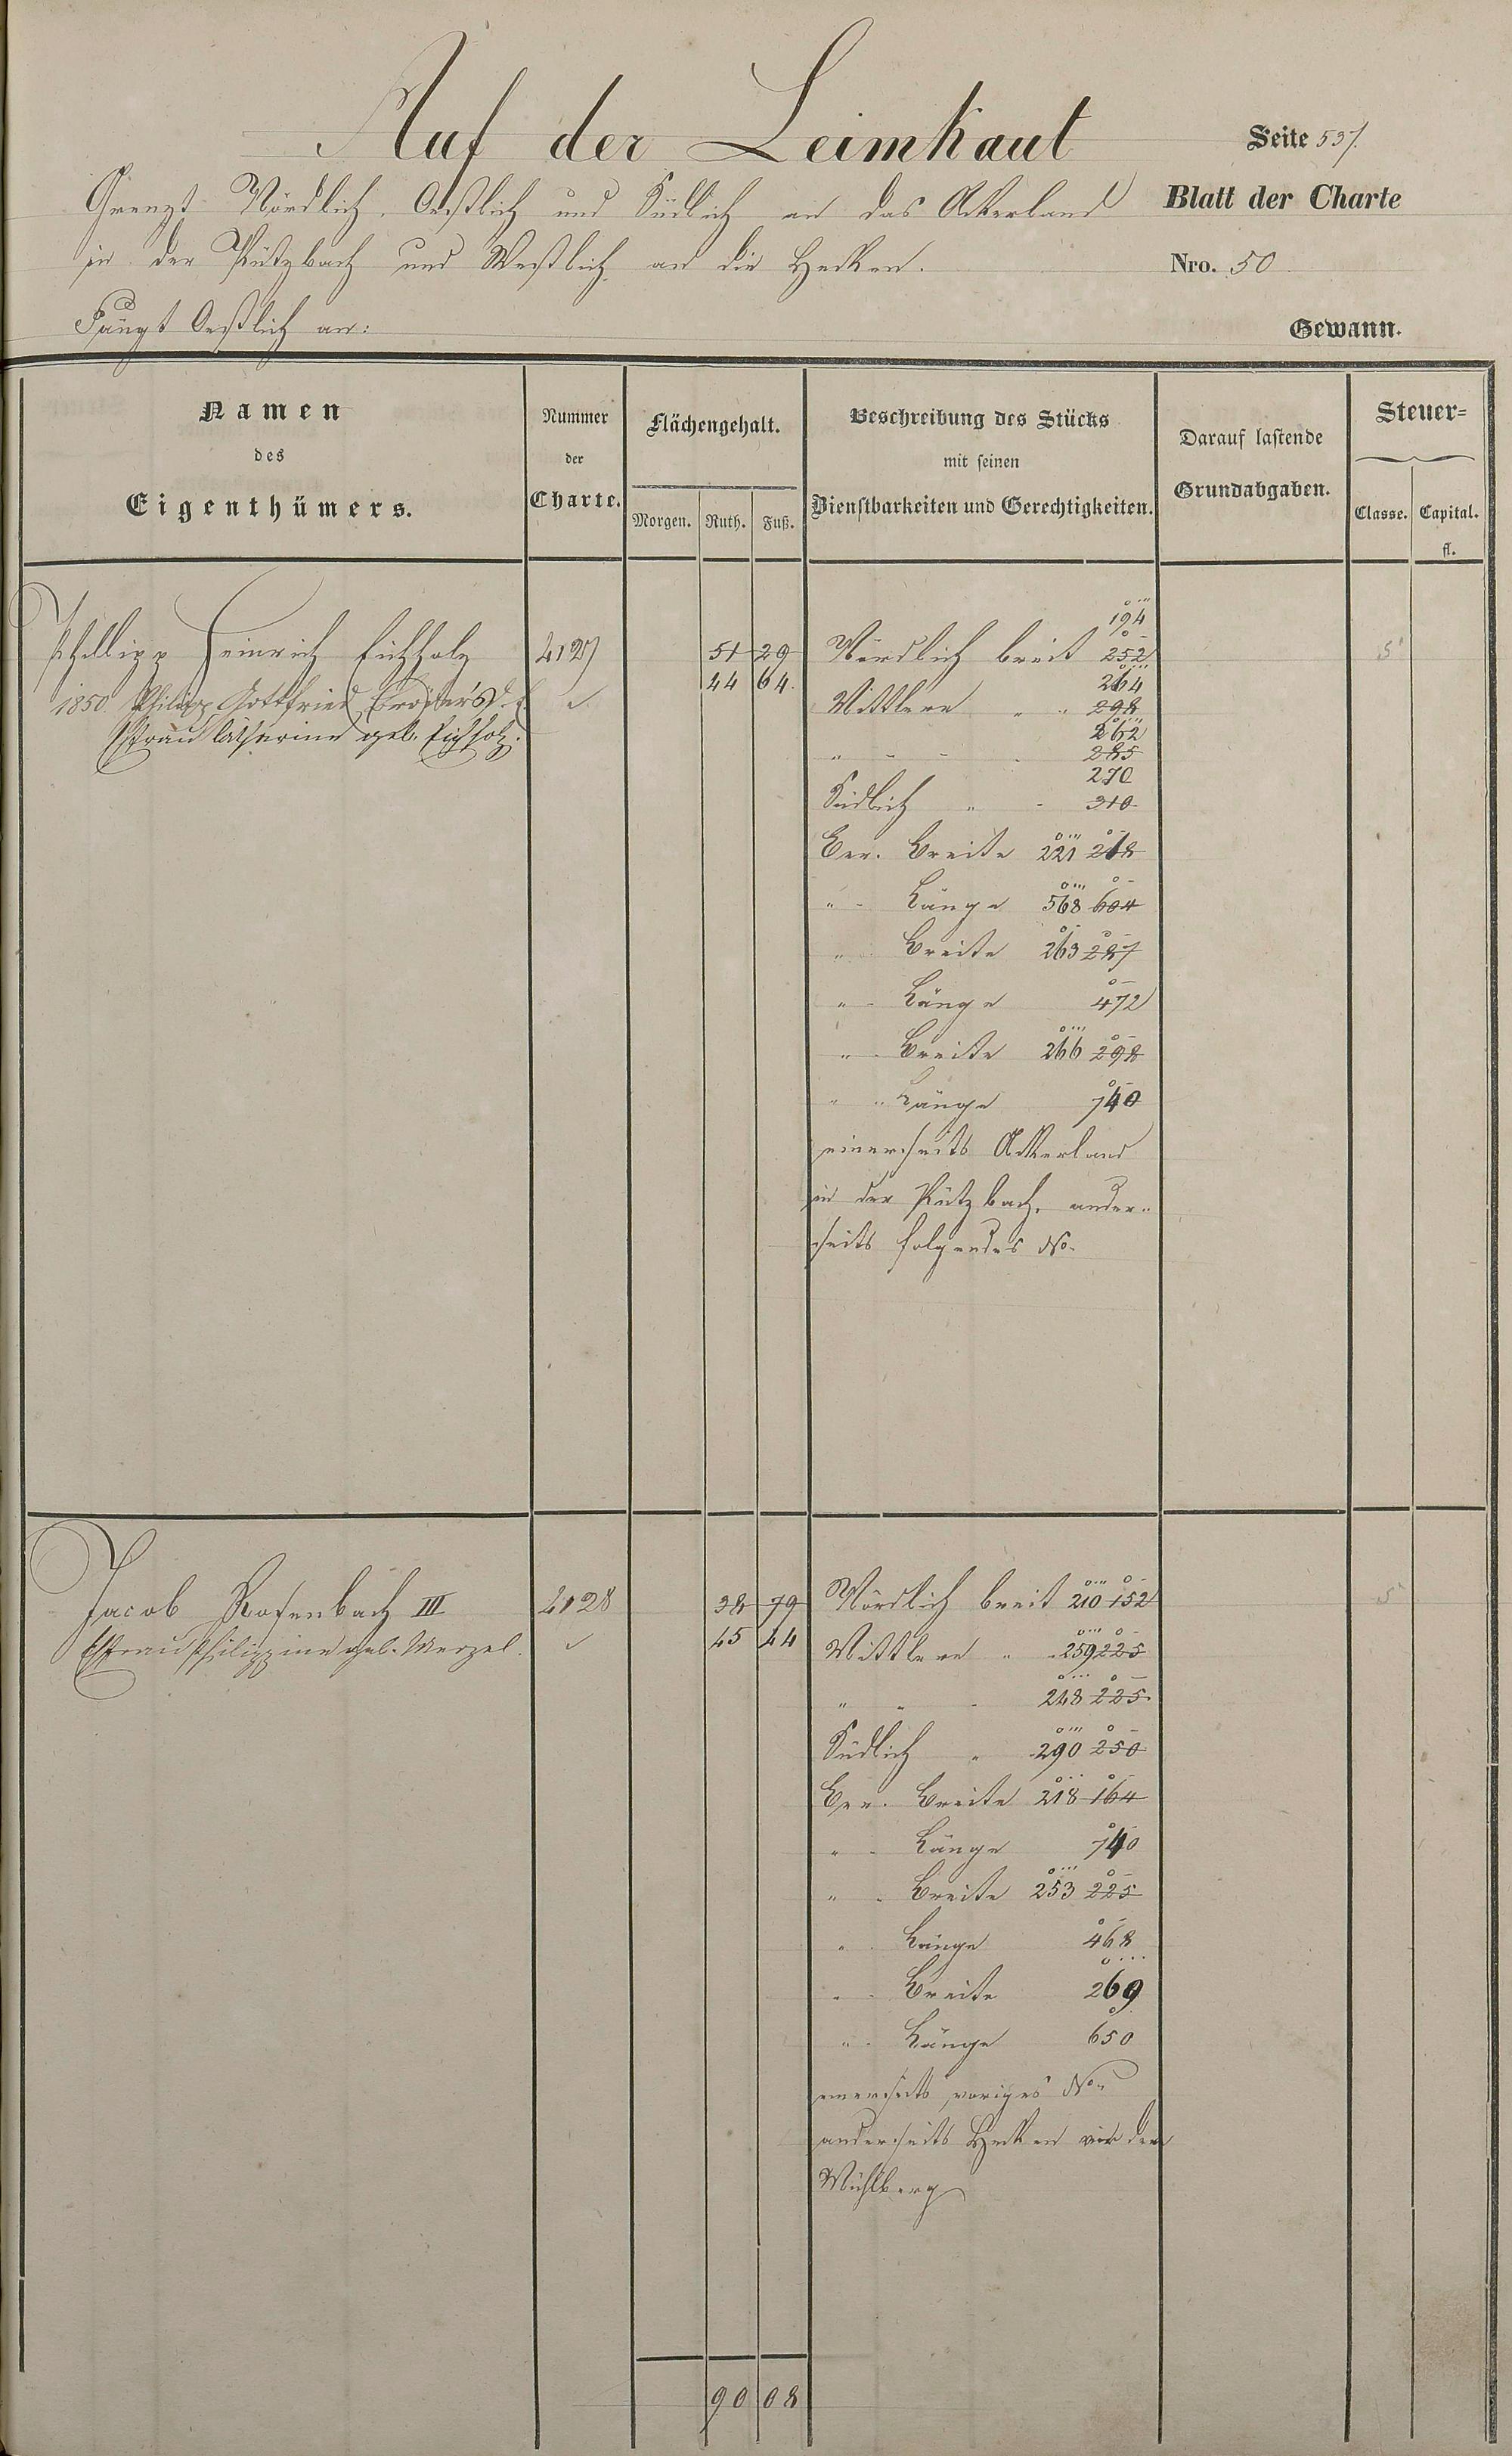 Auf der Leimkaut
Seite 537.
Grenzt Nördlich, Oestlich und Südlich an das Ackerland
Blatt der Charte
in der Pützbach und Westlich an die Hecken.
Nro. 50
Fängt Oestlich an:
Gewann.
Namen des Eigenthümers.
Nummer der Charte.
Flächengehalt.
Morgen. Ruth. Fuß.
Beschreibung des Stücks mit seinen Dienstbarkeiten und Gerechtigkeiten.
Darauf lastende Grundabgaben.
Steuer=
Classe. Capital.
fl.
194
Philipp Heinrich Eichholz 4127 51 29 Nördlich breit 252 5
44 64 264
1850. Philipp Gottfried
Mittlere " " 298
Ehfrau Catharine geb. Eichholz.
262
" - - 285
270
Südlich " - 310
Ber. Breite 221 218
" - Länge 568 604
" Breite 263 287
" - Länge 472
" - Breite 266 298
" " Länge 740
einerseits Ackerland
in der Pützbach, ander-
seits folgendes No.
Jacob Rosenbach III 4128 38 79 Nördlich breit 210 152 5
Ehfrau Philippine geb. Menzel. 45 44
Mittlere " 259 225
" " - 248 225
Südlich " 290 250
Ber. Breite 218 164
" - Länge 740
" - Breite 253 225
" - Länge 468
" - Breite 269
" - Länge 650
einerseits voriges No.
anderseits Hecken der
Mühlberg
90 08